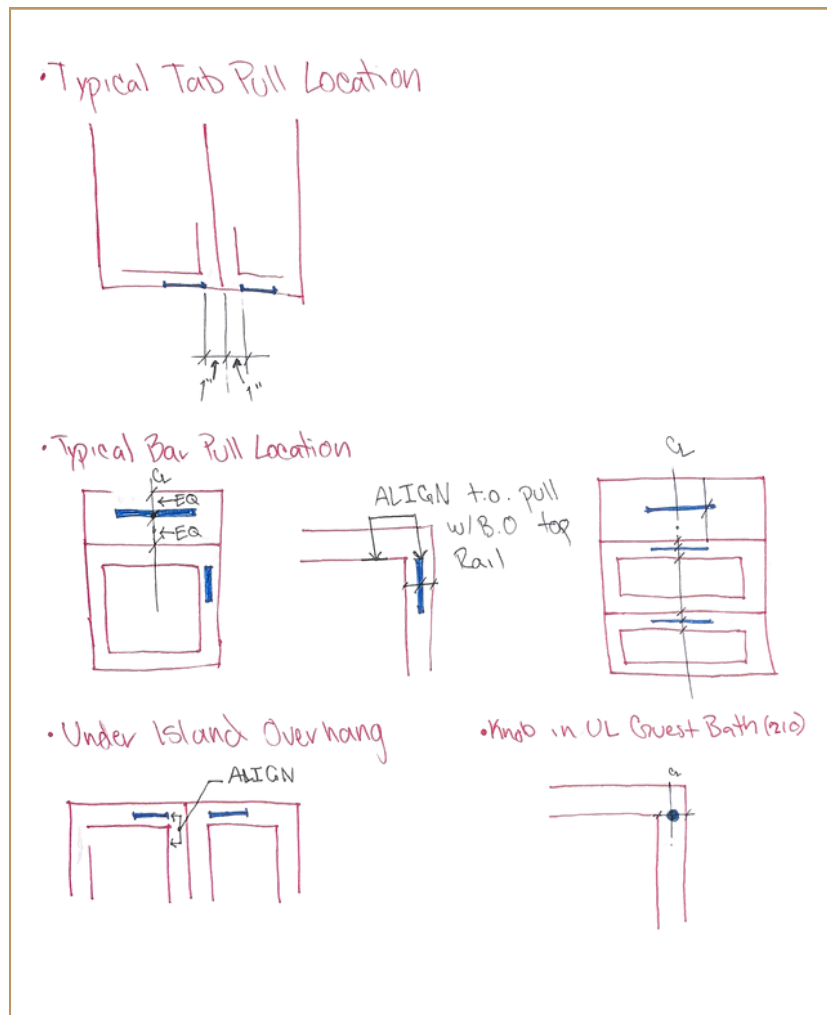 • Typical Tab Pull Location
1" 1"
• Typical Bar Pull Location
CL
EQ
EQ
ALIGN t.o. pull
w/B.O top
Rail
CL
• Under Island Overhang
ALIGN
• Knob in UL Guest Bath (210)
CL